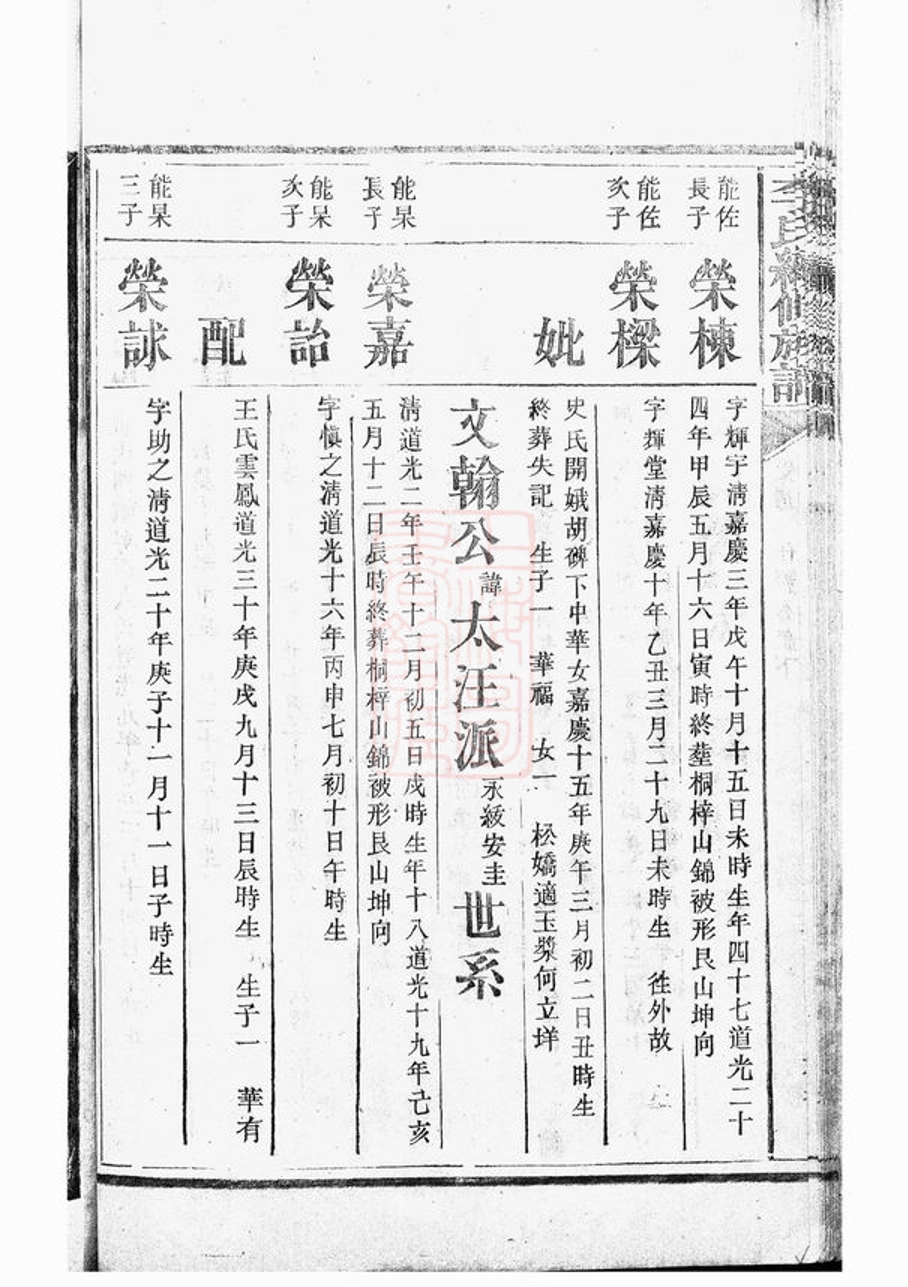 李氏續修族譜
能佐
長子
榮棟
字輝宇清嘉慶三年戊午十月十五日未時生年四十七道光二十
四年甲辰五月十六日寅時終塟桐梓山錦被形艮山坤向
能佐
次子
榮樑
字輝堂清嘉慶十年乙丑三月二十九日未時生 徃外故
妣
史氏開娥胡碑下中華女嘉慶十五年庚午三月初二日丑時生
終葬失記 生子一 華福 女一 松嬌適玉漿何立垟
文翰公諱太汪派永綏安圭世系
能杲
長子
榮嘉
清道光二年壬午十二月初五日戌時生年十八道光十九年己亥
五月十二日辰時終葬桐梓山錦被形艮山坤向
能杲
次子
榮詒
字愼之淸道光十六年丙申七月初十日午時生
配
王氏雲鳳道光三十年庚戌九月十三日辰時生 生子一 華有
能杲
三子
榮詠
字助之淸道光二十年庚子十一月十一日子時生